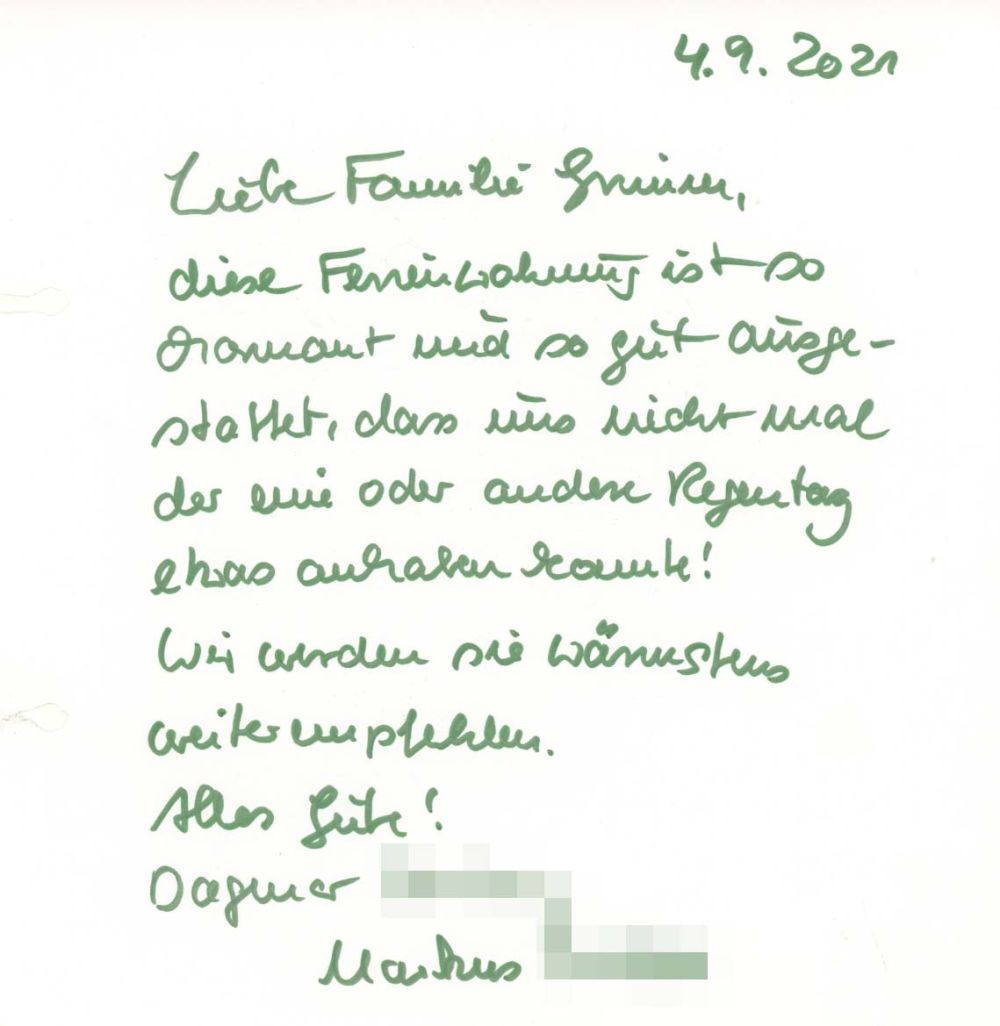 4.9.2021
Liebe Familie
diese Ferienwohnung ist so
charmant und so gut ausge-
stattet, dass uns nicht mal
der eine oder andere Regentag
etwas anhaben konnte!
Wir werden sie wärmstens
weiterempfehlen.
Alles Gute!
Dagmar
Markus